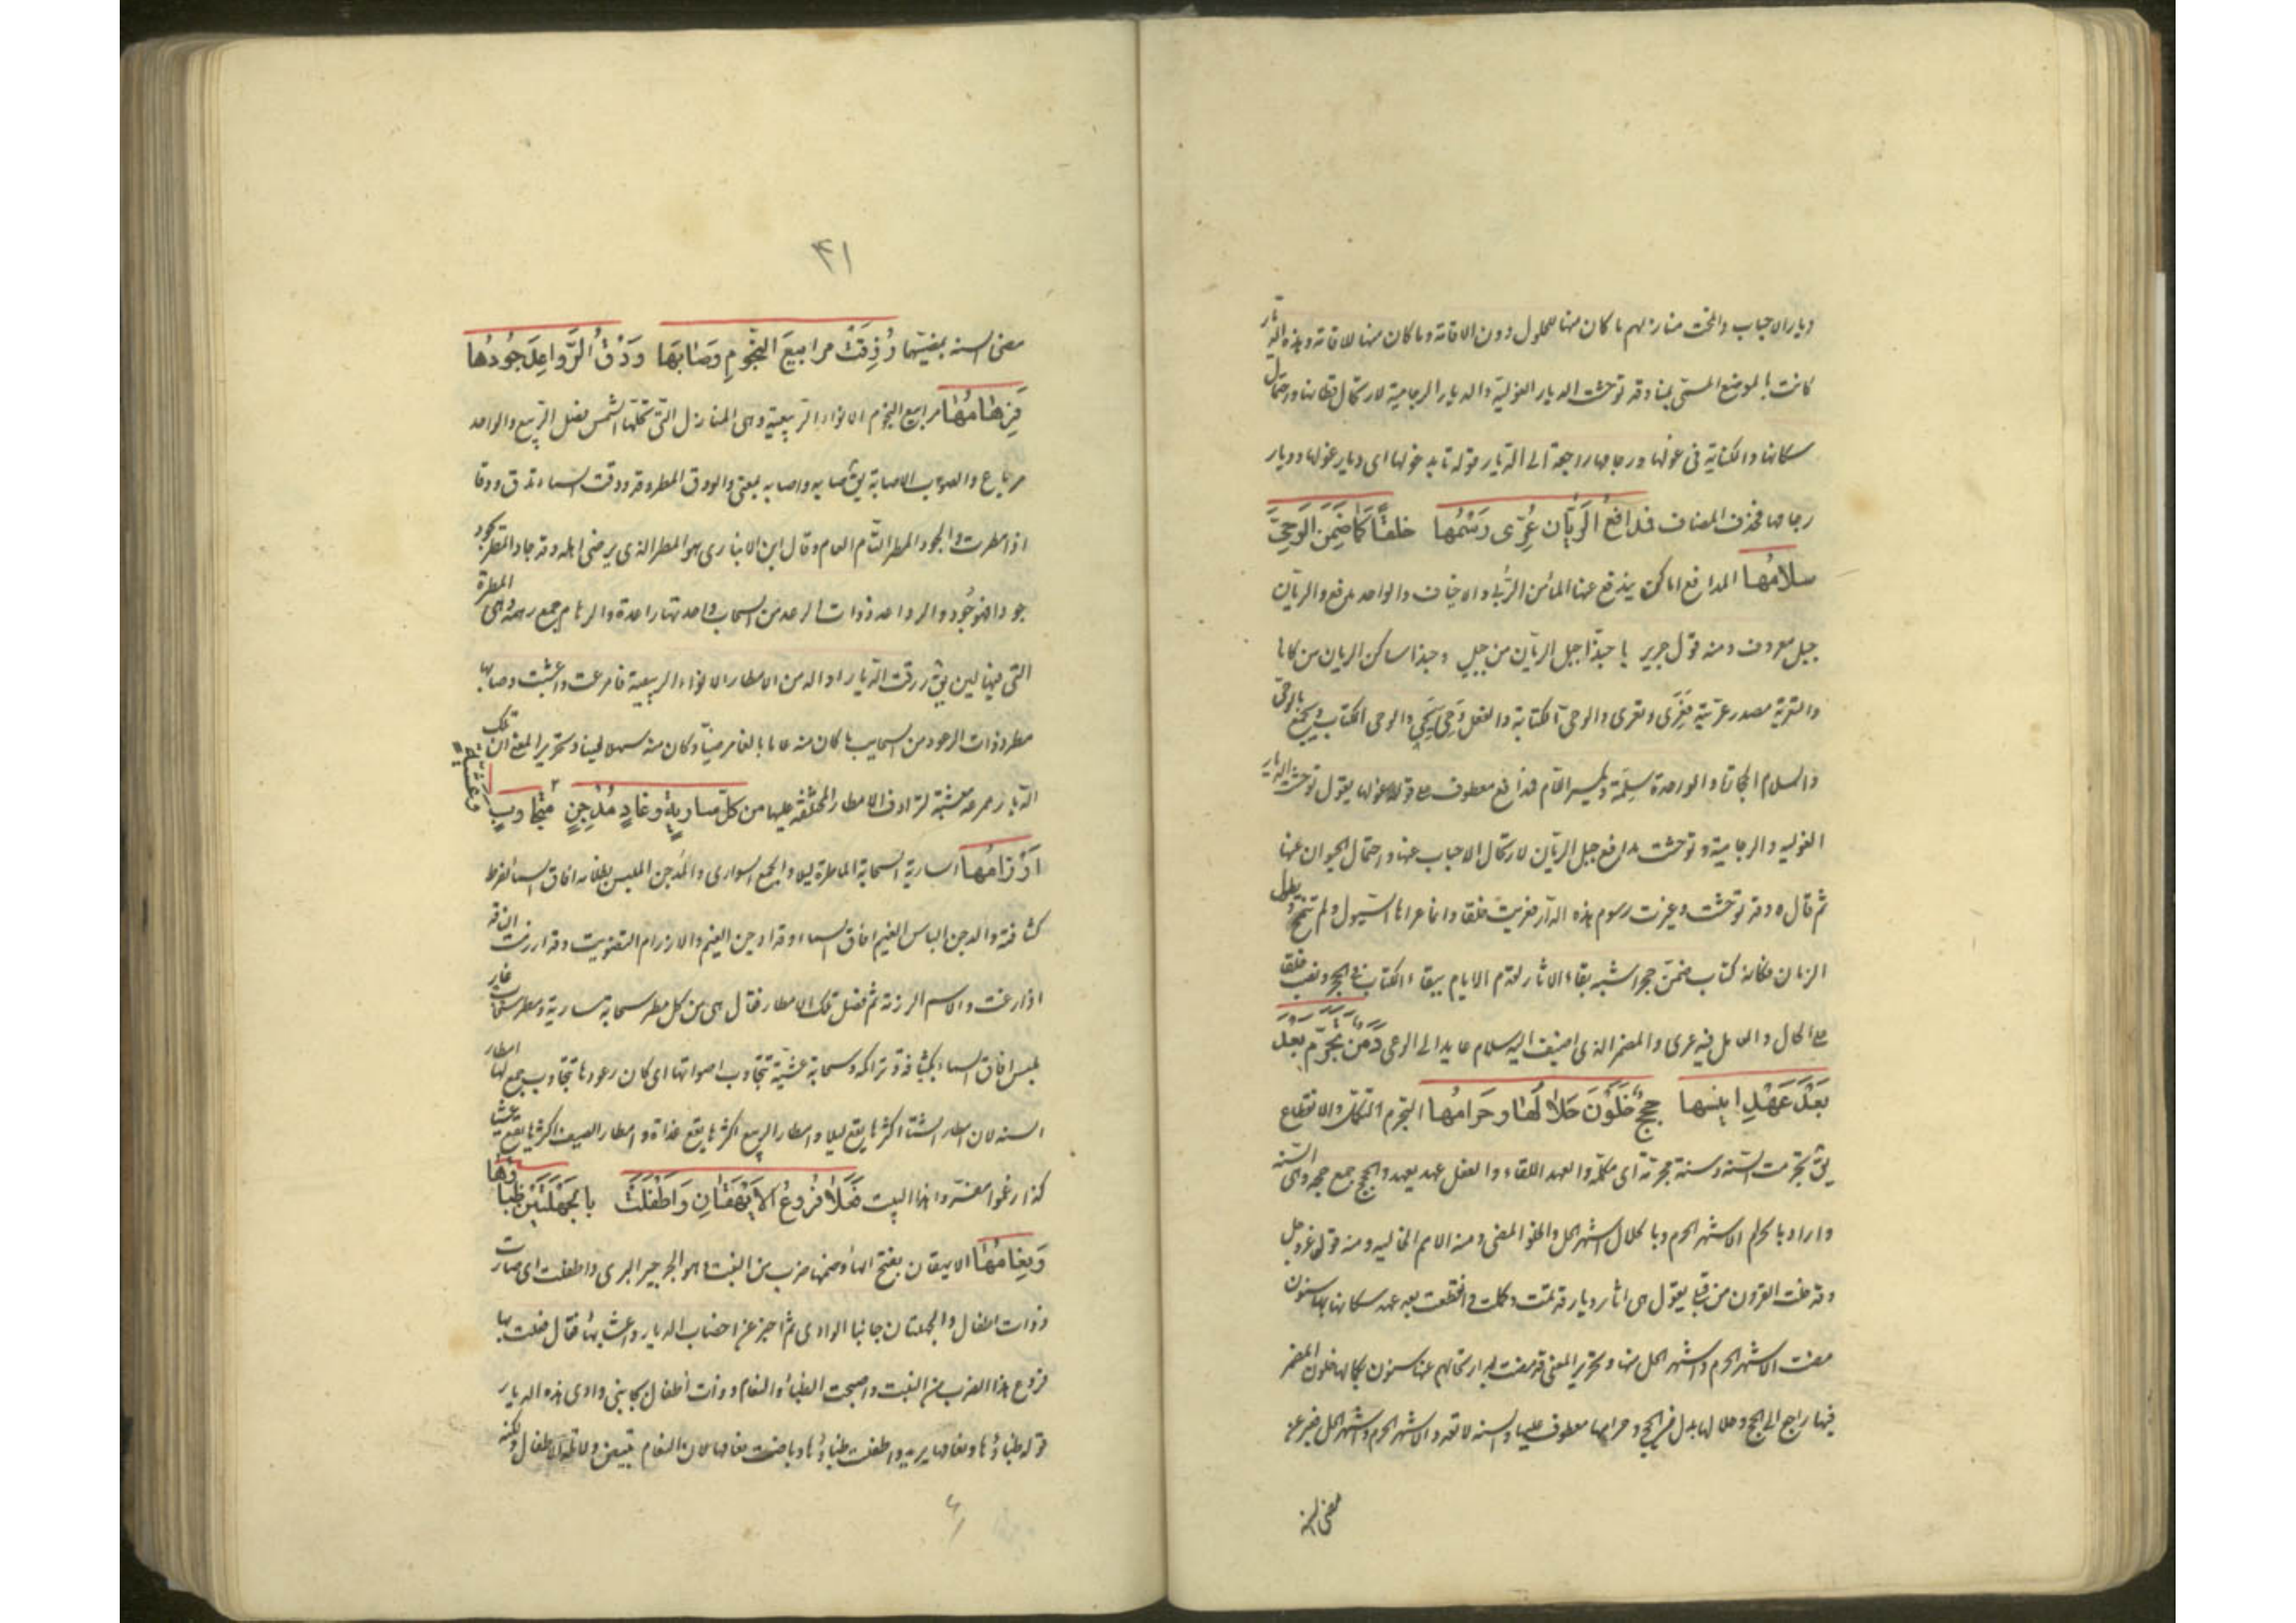 ديار الاحباب وانمحت منازلهم ما كان منها للحلول دون الاقامة وما كان منها للاقامة وهذه الديار
كانت بالموضع المسمى بمنا وقد توحشت الديار الغولية والديار الرجامية لارتحال قطانها واحتمال
سكانها والكناية في غولها ورجامها راجعة الى الديار قوله تأبد غولها اى ديار غولها وديار
رجامها فحذف المضاف فمدافع الريان عرى رسمها خلقا كما ضمن الوحى
سلامها المدافع اماكن يندفع عنها الماء من الربى والاخياف والواحد مدفع والريان
جبل معروف ومنه قول جرير يا حبذا جبل الريان من جبل وحبذا ساكن الريان من كانا
والتعرية مصدر عريته فعرى وتعرى والوحى الكتابة والفعل وحى يحى والوحى الكتاب والجمع الوحى
والسلام الحجارة والواحدة سلمة بكسر اللام فمدافع معطوف على قوله غولها يقول توحشت الديار
الغولية والرجامية وتوحشت مدافع جبل الريان لارتحال الاحباب عنها واحتمال الجيران عنها
ثم قال وقد توحشت وغيرت رسوم هذه الدار فعريت خلقا وانما عراها السيول ولم تنمح بطول
الزمان فكانه كتاب ضمن حجرا شبه بقاء الاثار لقدم الايام ببقاء الكتاب فى الحجر ونصب خلقا
على الحال والعامل فيه عرى والمضمر الذى اضيف اليه سلام عايد الى الوحى دمن تجرم بعد
بعد عهد انيسها حجج خلون حلالها وحرامها التجرم التكمل والانقطاع
يق تجرمت السنة وسنة مجرمة اى مكملة والعهد اللقاء والفعل عهد يعهد والحجج جمع حجة وهى السنة
واراد بالحرام الاشهر الحرم وبالحلال اشهر الحل والخلو المضى ومنه الامم الخالية ومنه قوله عز وجل
وقد خلت القرون من قبلى يقول هى اثار ديار قد تمت وكملت وانقطعت بعد عهد سكانها بها سنون
مضت الاشهر الحرم واشهر الحل منها وتحرير المعنى قد مضت بعد ارتحالهم عنها سنون بكمالها خلون المضمر
فيها راجع الى الحجج وحلالها بدل من الحجج وحرامها معطوف عليها والسنة لا تعدو الاشهر الحرم واشهر الحل فعبر عن
مضى السنة
٤١
مضى السنة بمضيهما رزقت مرابيع النجوم وصابها ودق الرواعد جودها
فرهامها مرابيع النجوم الانواء الربيعية وهى المنازل التى تحلها الشمس فصل الربيع والواحد
مرباع والصوب الاصابة يق صابه واصابه بمعنى والودق المطر وقد ودقت السماء تدق ودقا
اذا امطرت والجود المطر التام العام وقال ابن الانبارى هو المطر الذى يرضى اهله وقد جاد المطر يجود
جودا فهو جود والرواعد ذوات الرعد من السحاب واحدتها راعدة والرهام جمع رهمة وهى المطرة
التى فيها لين يق رزقت الديار او الدمن الامطار الانواء الربيعية فامرعت واعشبت وصابها
مطر ذوات الرعود من السحايب ما كان منه عاما بالغا مرضيا وكان منه سهلا لينا وتحرير المعنى ان تلك
الديار ممرعة معشبة لترادف الامطار المختلفة عليها من كل سارية وغاد مدجن وعشية متجاوب
ارزامها السارية السحابة الماطرة ليلا والجمع السوارى والمدجن الملبس بظلامه افاق السماء لفرط
كثافته والدجن الباس الغيم افاق السماء وقد ادجن الغيم والارزام التصويت وقد ارزمت الناقة
اذا رغت والاسم الرزمة ثم فصل تلك الامطار فقال هى من كل مطر سحابة سارية ومطر سحاب غاد
يلبس افاق السماء بكثافته وتراكمه وسحابة عشية تتجاوب اصواتها اى كان رعودها تتجاوب جمع لها امطار
السنة لان امطار الشتاء اكثرها يقع ليلا وامطار الربيع اكثرها يقع غداة وامطار الصيف اكثرها يقع عشيا
كذا زعموا مفسروا هذا البيت فعلا فروع الايهقان واطفلت بالجهلتين ظباؤها
ونعامها الايهقان بفتح الهاء وضمها ضرب من النبت وهو الجرجير البرى واطفلت اى صارت
ذوات اطفال والجهلتان جانبا الوادى ثم اخبر عن اخصاب الديار واعشابها فقال فعلت بها
فروع هذا الضرب من النبت واصبحت الظباء والنعام ذوات اطفال بجانبى وادى هذه الديار
قوله ظباؤها ونعامها يريد واطفلت ظباؤها وباضت نعامها لان النعام تبيض ولا تلد الاطفال ولكنه